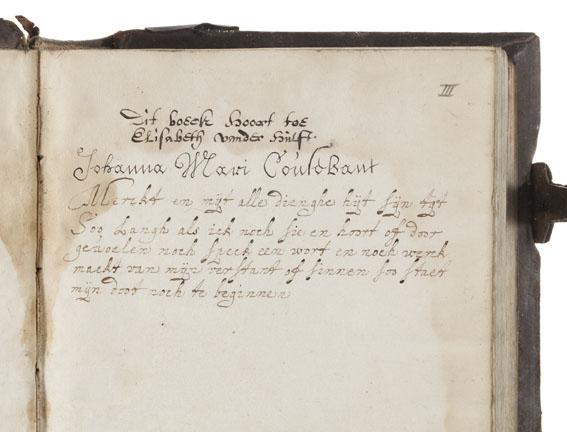 III
Dit boeck hoort toe
Elisabeth vander hulst.
Johanna Mari Coulsbant
Merckt en mijt alle dienghe hijt sijn tijt
Soo Langh als ick noch sie en hoort of door
gevoelen noch speck een wort en noch werk
maekt van mijn verstant of sinnen soo staet
mijn doot noch te beginnen